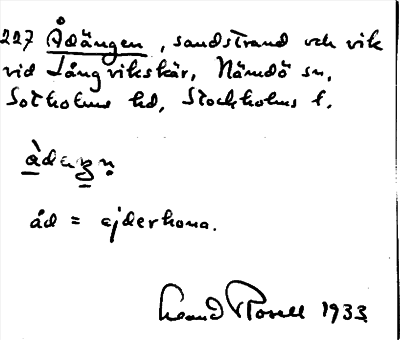 227 Ådängen, sandstrand och vik
vid Långvikskär, Nämdö sn,
Sotholms hd, Stockholms l.
åd = ejderhona.
Rosell 1933